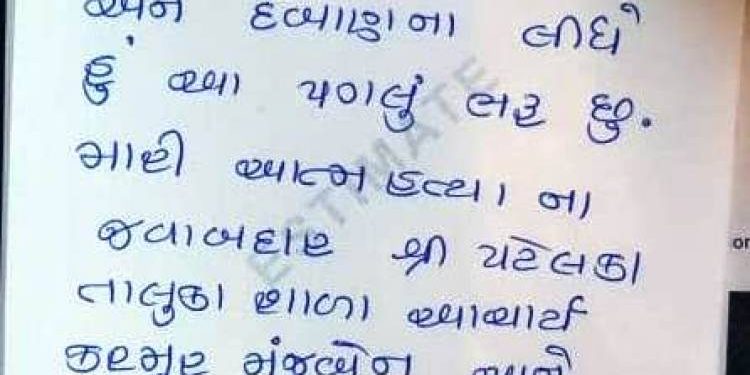 અને દબાણના લીધે
હું આ પગલું ભરૂ છુ.
મારી આત્મહત્યા ના
જવાબદાર શ્રી પટેલકા
તાલુકા શાળા આચાર્ય
કરમુર મંજુબેન અને
ESTIMATE
or